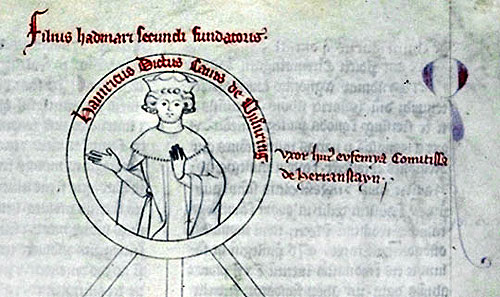 Filius hadmari secundi fundatoris.
Hainricus Dictus Canis de Chufaring.
vxor hui9 eufemya Comitissa
de herranstayn.